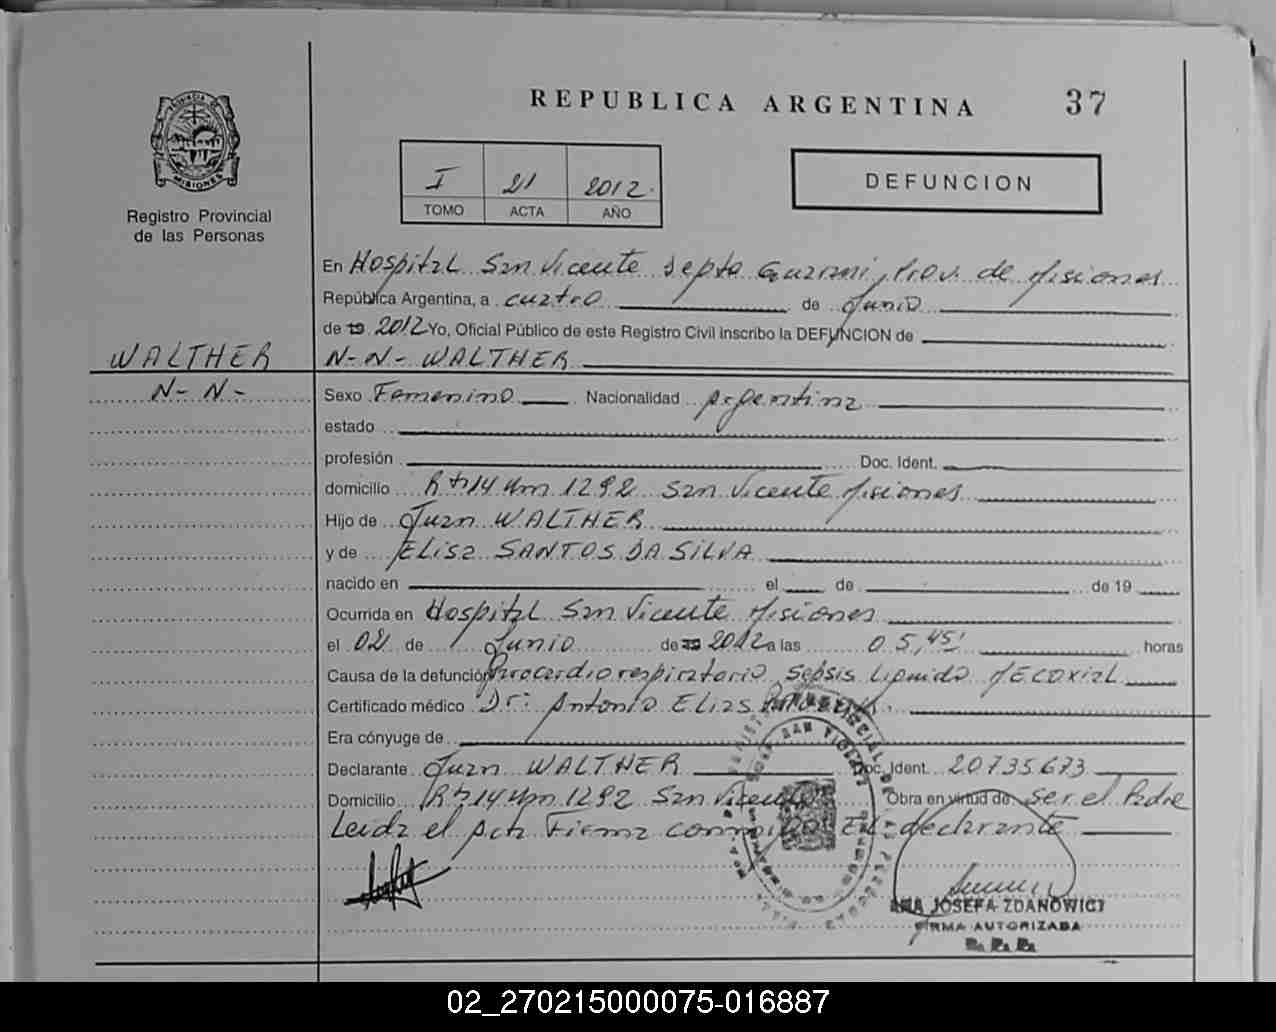 REPUBLICA ARGENTINA 37
PROVINCIA DE MISIONES
Registro Provincial
de las Personas
I 21 2012
TOMO ACTA AÑO
DEFUNCION
En Hospital San Vicente Depto Guarani, Prov. de Misiones
República Argentina, a cuatro de Junio
de 19 2012 Yo, Oficial Público de este Registro Civil inscribo la DEFUNCION de
WALTHER N-N- WALTHER
N-N-
Sexo Femenino Nacionalidad Argentina
estado
profesión Doc. Ident.
domicilio Rta 14 Km 1292 San Vicente Misiones
Hijo de Juan WALTHER
y de Elisa SANTOS DA SILVA
nacido en el de de 19
Ocurrida en Hospital San Vicente Misiones
el 02 de Junio de 19 2012 a las 05,45' horas
Causa de la defunción Parocardiorespiratorio sepsis liquido MECOXIAL
Certificado médico Dr: Antonio Elias
Era cónyuge de
Declarante Juan WALTHER Doc. Ident. 20735673
Domicilio Rta 14 Km 1292 San Vicente Obra en virtud de ser el Padre
Leida el Acta Firma conmigo El declarante
ANA JOSEFA ZDANOWICZ
FIRMA AUTORIZADA
R. P. P.
02_270215000075-016887